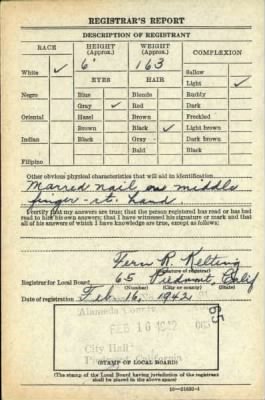 REGISTRAR'S REPORT
DESCRIPTION OF REGISTRANT
RACE HEIGHT (Approx.) WEIGHT (Approx.) COMPLEXION
White ✓ 6' 163 Sallow
EYES HAIR Light ✓
Negro Blue Blonde Ruddy
Gray ✓ Red Dark
Oriental Hazel Brown Freckled
Brown Black ✓ Light brown
Indian Black Gray Dark brown
Bald Black
Filipino
Other obvious physical characteristics that will aid in identification
Marred nail on middle
finger - rt. hand.
I certify that my answers are true; that the person registered has read or has had
read to him his own answers; that I have witnessed his signature or mark and that
all of his answers of which I have knowledge are true, except as follows:
Fern R. Kelting
(Signature of registrar)
Registrar for Local Board 65 Piedmont, Calif
(Number) (City or county) (State)
Date of registration Feb. 16, 1942
Alameda County 65
FEB 16 1942
City Hall
California
(STAMP OF LOCAL BOARD)
(The stamp of the Local Board having jurisdiction of the registrant
shall be placed in the above space)